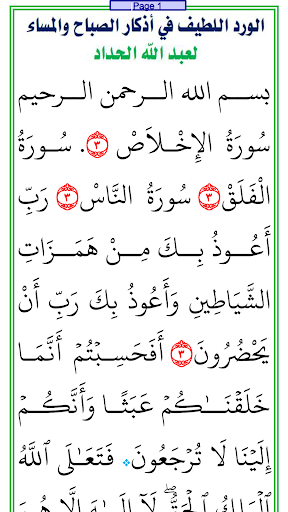 Page 1
الورد اللطيف في أذكار الصباح والمساء
لعبد الله الحداد
بســم الله الــرحمن الــرحيم
سُورَةُ الإِخْـلاَصْ ٣. سُـورَةُ
الْفَلَقْ ٣ سُورَةُ النَّاسْ ٣ رَبِّ
أَعُـوذُ بِـكَ مِـنْ هَمَـزَاتِ
الشَّيَاطِينِ وَأَعُوذُ بِكَ رَبِّ أَنْ
يَحْضُرُونَ ٣ أَفَحَسِبْتُمْ أَنَّمَا
خَلَقْنَـٰكُمْ عَبَثًا وَأَنَّكُمْ
إِلَيْنَا لَا تُرْجَعُونَ فَتَعَالَى ٱللَّهُ
ٱلْمَلِكُ ٱلْحَقُّ ۖ لَآ إِلَـٰهَ إِلَّا هُوَ